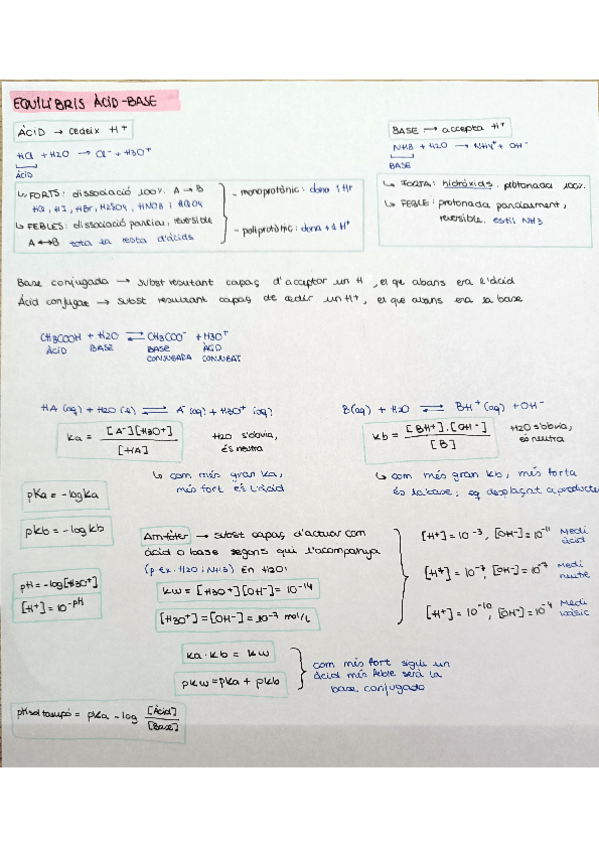 EQUILIBRIS ÀCID-BASE
ÀCID → cedeix H+
HCl + H2O → Cl- + H3O+
ÀCID
↳ FORTS: dissociació 100%. A → B
HCl, HI, HBr, H2SO4, HNO3 i HClO4
↳ FEBLES: dissociació parcial, reversible
A ↔ B tota la resta d'àcids
- monopròtònic: dona 1 H+
- polipròtònic: dona +1 H+
BASE → accepta H+
NH3 + H2O → NH4+ + OH-
BASE
↳ FORTA: hidròxids. protonada 100%.
↳ FEBLE: protonada parcialment,
reversible. estil NH3
Base conjugada → subst resultant capaç d'acceptar un H, el que abans era l'àcid
Àcid conjugat → subst resultant capaç de cedir un H+, el que abans era la base
CH3COOH + H2O ⇌ CH3COO- + H3O+
ÀCID BASE BASE CONJUGADA ÀCID CONJUGAT
HA (aq) + H2O (l) ⇌ A- (aq) + H3O+ (aq)
Ka = [A-][H3O+] / [HA]
H2O s'obvia,
és neutra
↳ com més gran Ka,
més fort és l'àcid
B(aq) + H2O ⇌ BH+ (aq) + OH-
Kb = [BH+].[OH-] / [B]
H2O s'obvia,
és neutra
↳ com més gran Kb, més forta
és la base, eq desplaçat a producte
pKa = -logKa
pKb = -logKb
pH = -log[H3O+]
[H+] = 10-pH
Amfòter → subst capaç d'actuar com
àcid o base segons qui l'acompanya
(p.ex. H2O i NH3) En H2O:
Kw = [H3O+][OH-] = 10-14
[H3O+] = [OH-] = 10-7 mol/L
[H+] = 10-3, [OH-] = 10-11 Medi àcid
[H+] = 10-7, [OH-] = 10-7 Medi neutre
[H+] = 10-10, [OH-] = 10-4 Medi bàsic
Ka · Kb = Kw
pKw = pKa + pKb
com més fort sigui un
àcid més feble serà la
base conjugado
pH sol tampó = pKa - log [Àcid] / [Base]